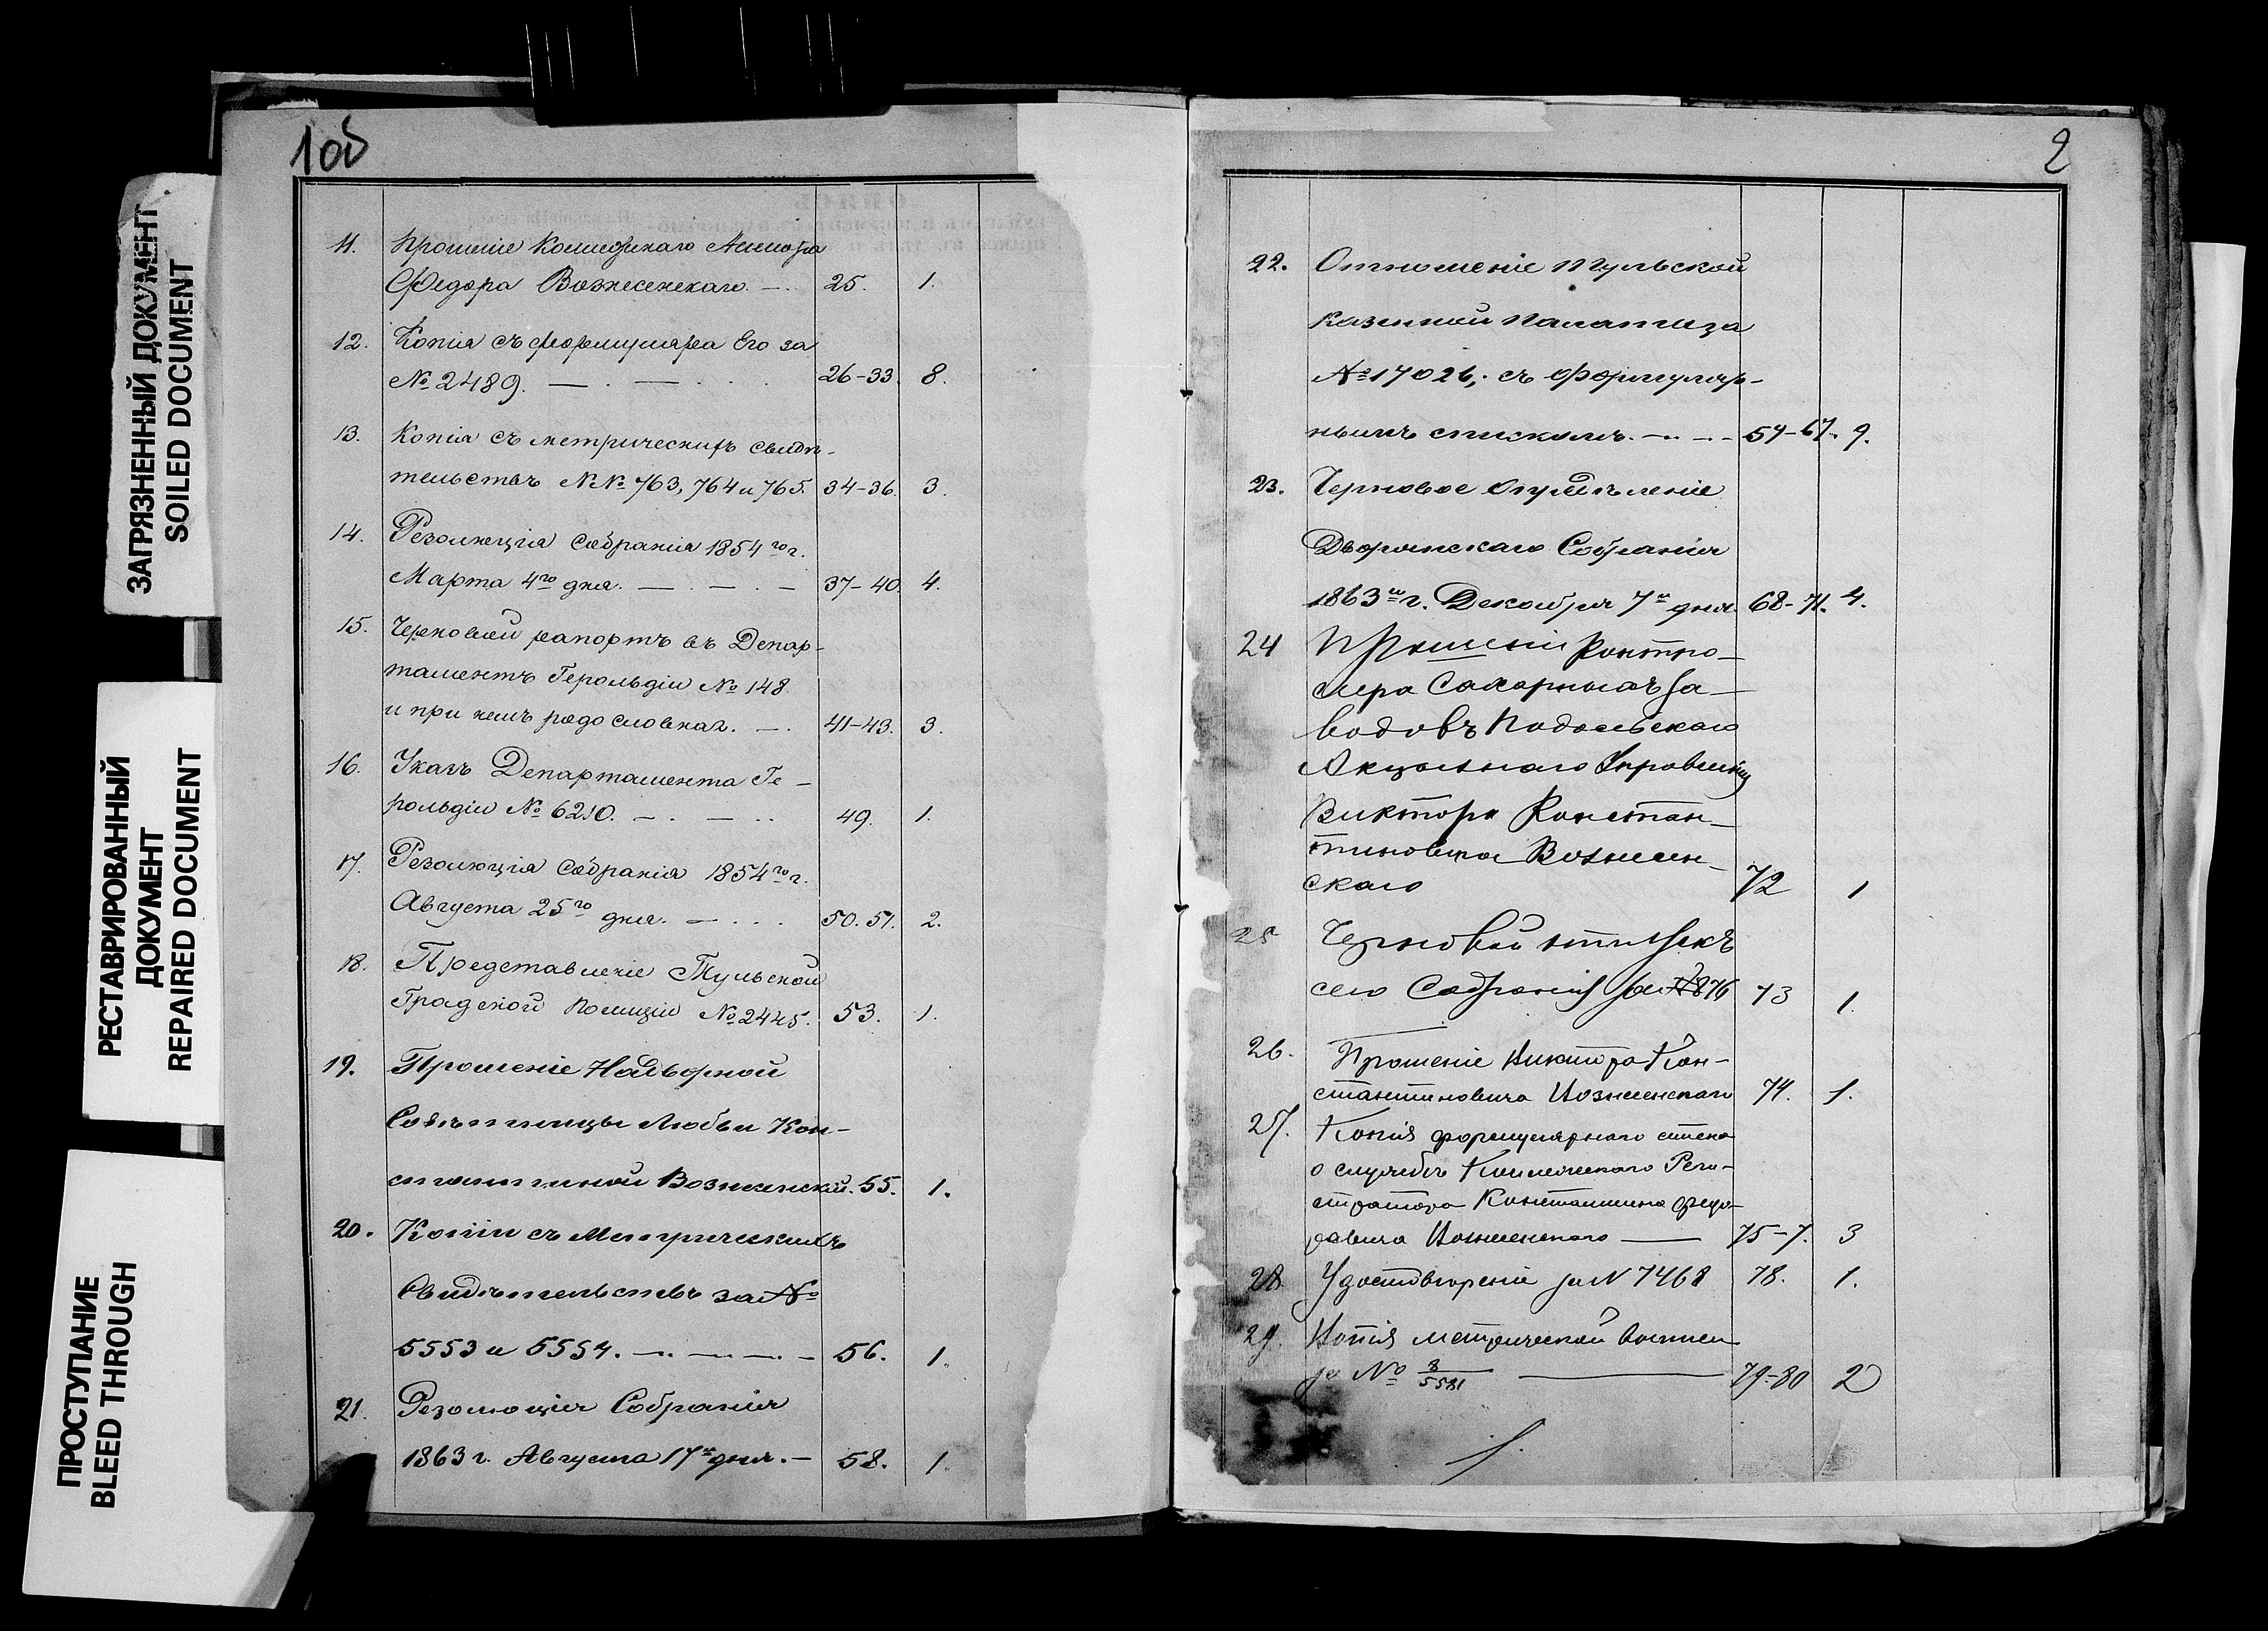 ЗАГРЯЗНЕННЫЙ ДОКУМЕНТ
SOILED DOCUMENT
РЕСТАВРИРОВАННЫЙ
ДОКУМЕНТ
REPAIRED DOCUMENT
ПРОСТУПАНИЕ
BLEED THROUGH
1об
11. Прошеніе Коллежскаго Ассесора
Федора Вознесенскаго. — 25. 1.
12. Копія съ формуляра Его за
№ 2489. — . — . . . 26-33. 8.
13. Копія съ метрическихъ свидѣ-
тельствъ №№ 763, 764 и 765. 34-36. 3.
14. Резолюція Собранія 1854 го г.
Марта 4го дня. — . — . — 37-40. 4.
15. Черновой рапортъ въ Депар-
таментъ Герольдіи № 148
и при немъ родословная. — . 41-43. 3.
16. Указъ Департамента Ге-
рольдіи № 6210. — . — . . 49. 1.
17. Резолюція Собранія 1854 го г.
Августа 25го дня. — . . . 50. 51. 2.
18. Представленіе Тульской
Градской Полиціи № 2445. 53. 1.
19. Прошеніе Надворной
Совѣтницы Любви Кон-
стантиновой Вознесенской. 55. 1.
20. Копіи съ Метрическихъ
Свидѣтельствъ за №
5553 и 5554. — . — . — . — 56. 1.
21. Резолюція Собранія
1863 г. Августа 17го дня. — 58. 1.
2
22. Отношеніе Тульской
Казенной Палаты за
№ 17026, съ Формуляр-
нымъ спискомъ. — . . — . — 59-67. 9.
23. Черновое Опредѣленіе
Дворянскаго Собранія
1863 го г. Декабря 7го дня. 68-71. 4.
24 Прошеніе Контро-
лера Сахарныхъ за-
водовъ Подольскаго
Акцизнаго Управленія
Виктора Констан-
тиновича Вознесен-
скаго 72 1
25 Черновой отпускъ
сего Собранія за № 876 73 1.
26. Прошеніе Виктора Кон-
стантиновича Вознесенскаго 74. 1.
27. Копія формулярнаго списка
о службѣ Коллежскаго Реги-
стратора Константина Федо-
ровича Вознесенскаго — 75-7. 3
28. Удостовѣреніе за N 7468 78. 1.
29. Копія метрической выписи
за № 8/5581 — 79-80 2